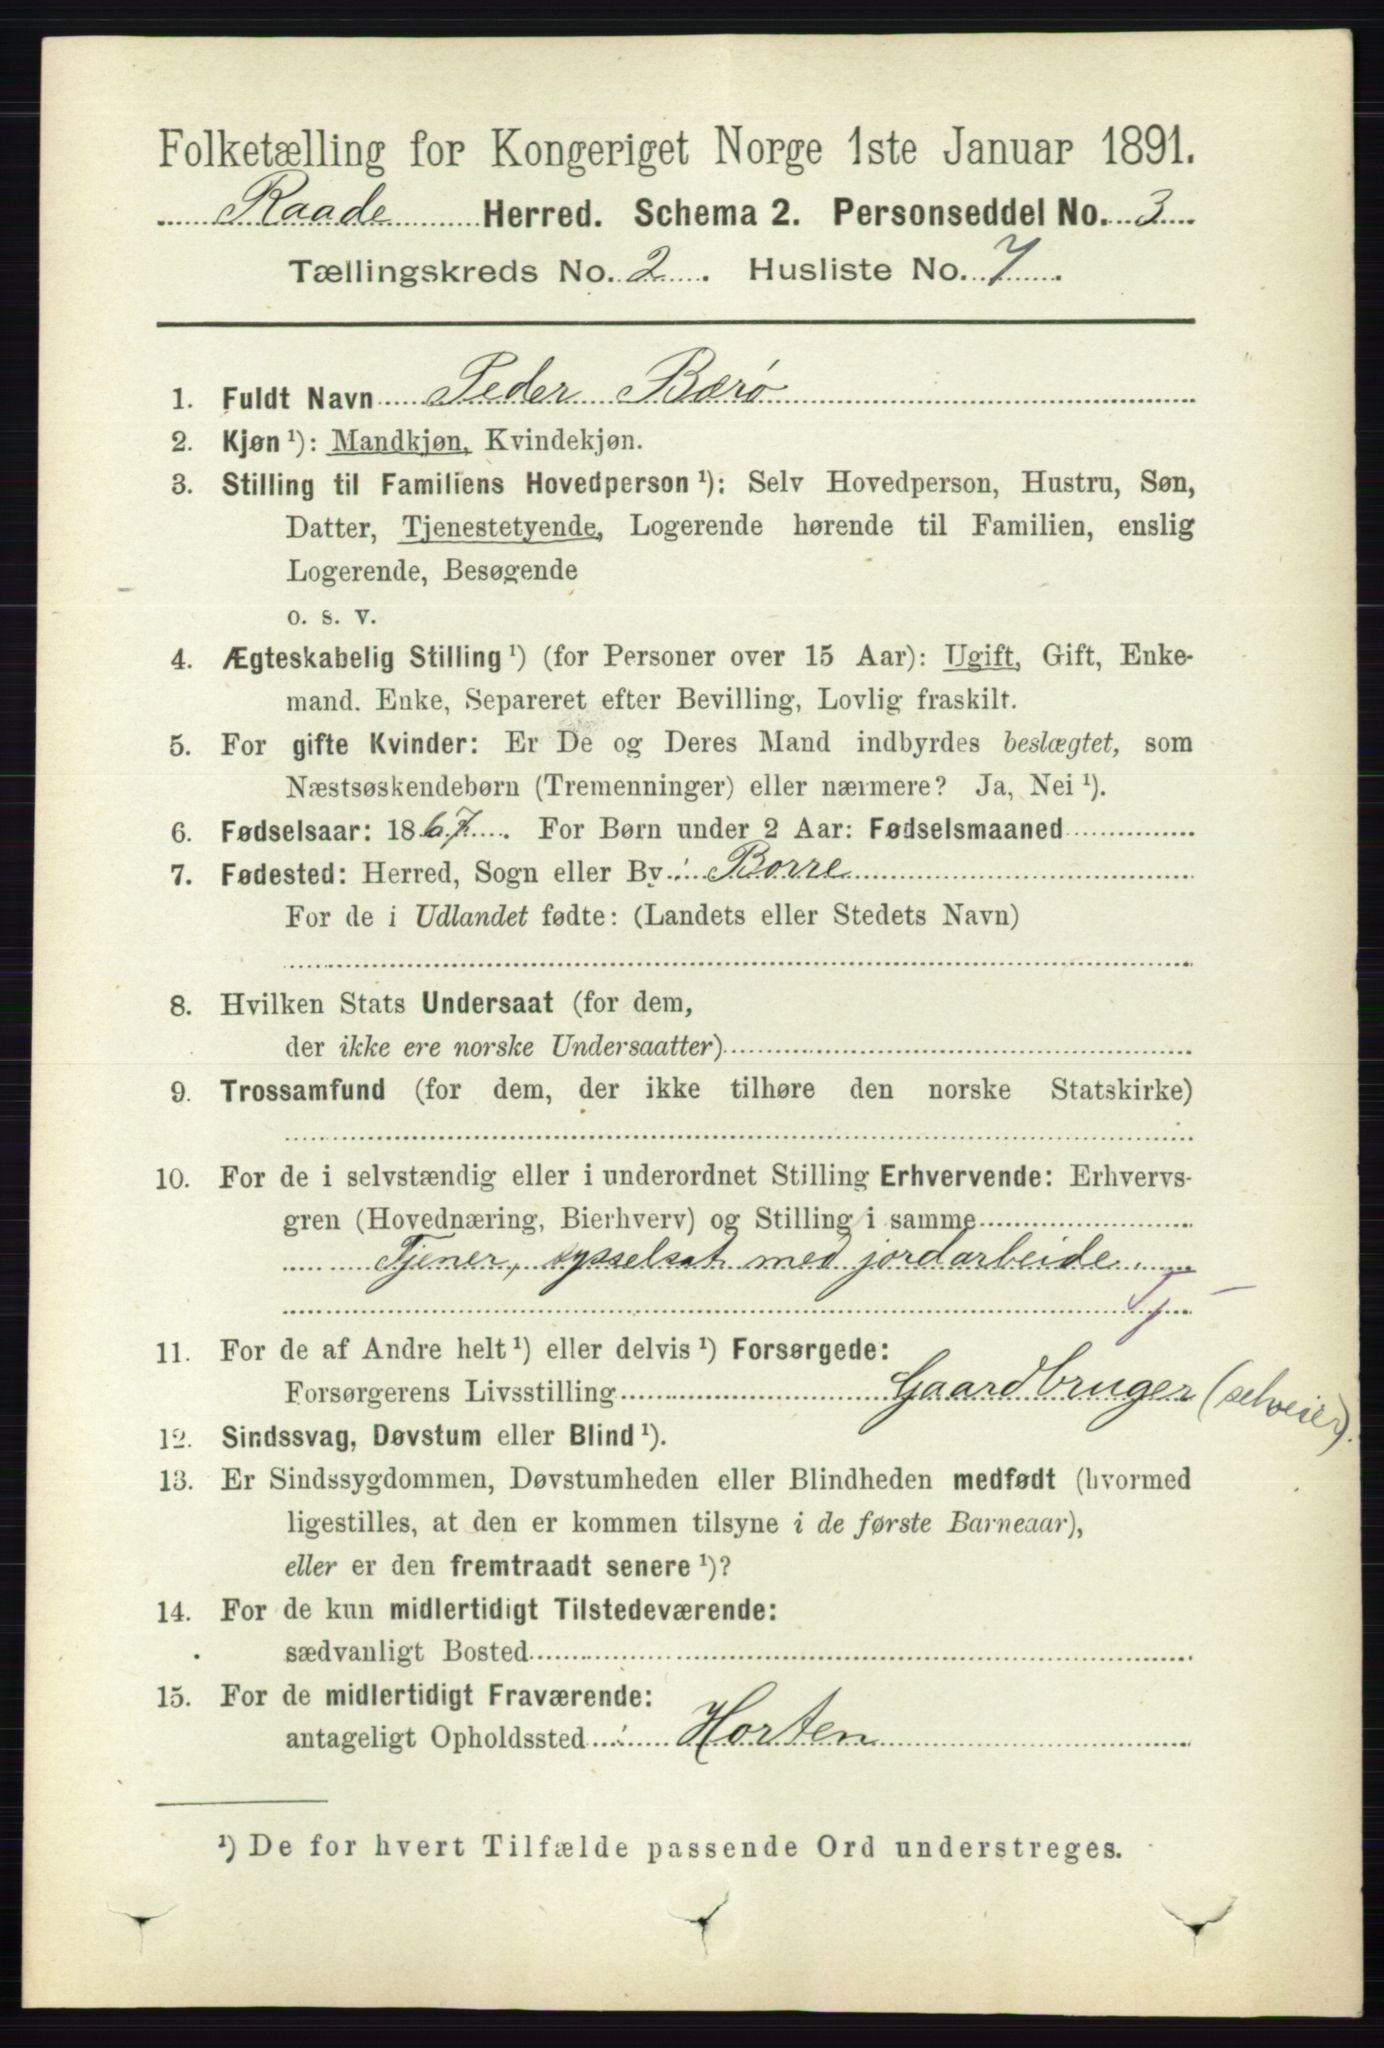 Folketælling for Kongeriget Norge 1ste Januar 1891.
Raade Herred. Schema 2. Personseddel No. 3
Tællingskreds No. 2. Husliste No. 7
1. Fuldt Navn Peder Bærø
2. Kjøn ¹): Mandkjøn, Kvindekjøn.
3. Stilling til Familiens Hovedperson ¹): Selv Hovedperson, Hustru, Søn,
Datter, Tjenestetyende, Logerende hørende til Familien, enslig
Logerende, Besøgende
o. s. v.
4. Ægteskabelig Stilling ¹) (for Personer over 15 Aar): Ugift, Gift, Enke-
mand. Enke, Separeret efter Bevilling, Lovlig fraskilt.
5. For gifte Kvinder: Er De og Deres Mand indbyrdes beslægtet, som
Næstsøskendebørn (Tremenninger) eller nærmere? Ja, Nei ¹).
6. Fødselsaar: 1867. For Børn under 2 Aar: Fødselsmaaned
7. Fødested: Herred, Sogn eller By: Borre
For de i Udlandet fødte: (Landets eller Stedets Navn)
8. Hvilken Stats Undersaat (for dem,
der ikke ere norske Undersaatter)
9. Trossamfund (for dem, der ikke tilhøre den norske Statskirke)
10. For de i selvstændig eller i underordnet Stilling Erhvervende: Erhvervs-
gren (Hovednæring, Bierhverv) og Stilling i samme
Tjener, sysselsat med jordarbeide.
Tj –
11. For de af Andre helt ¹) eller delvis ¹) Forsørgede:
Forsørgerens Livsstilling Gaardbruger (selveier).
12. Sindssvag, Døvstum eller Blind ¹).
13. Er Sindssygdommen, Døvstumheden eller Blindheden medfødt (hvormed
ligestilles, at den er kommen tilsyne i de første Barneaar),
eller er den fremtraadt senere ¹)?
14. For de kun midlertidigt Tilstedeværende:
sædvanligt Bosted
15. For de midlertidigt Fraværende:
antageligt Opholdssted: Horten
¹) De for hvert Tilfælde passende Ord understreges.